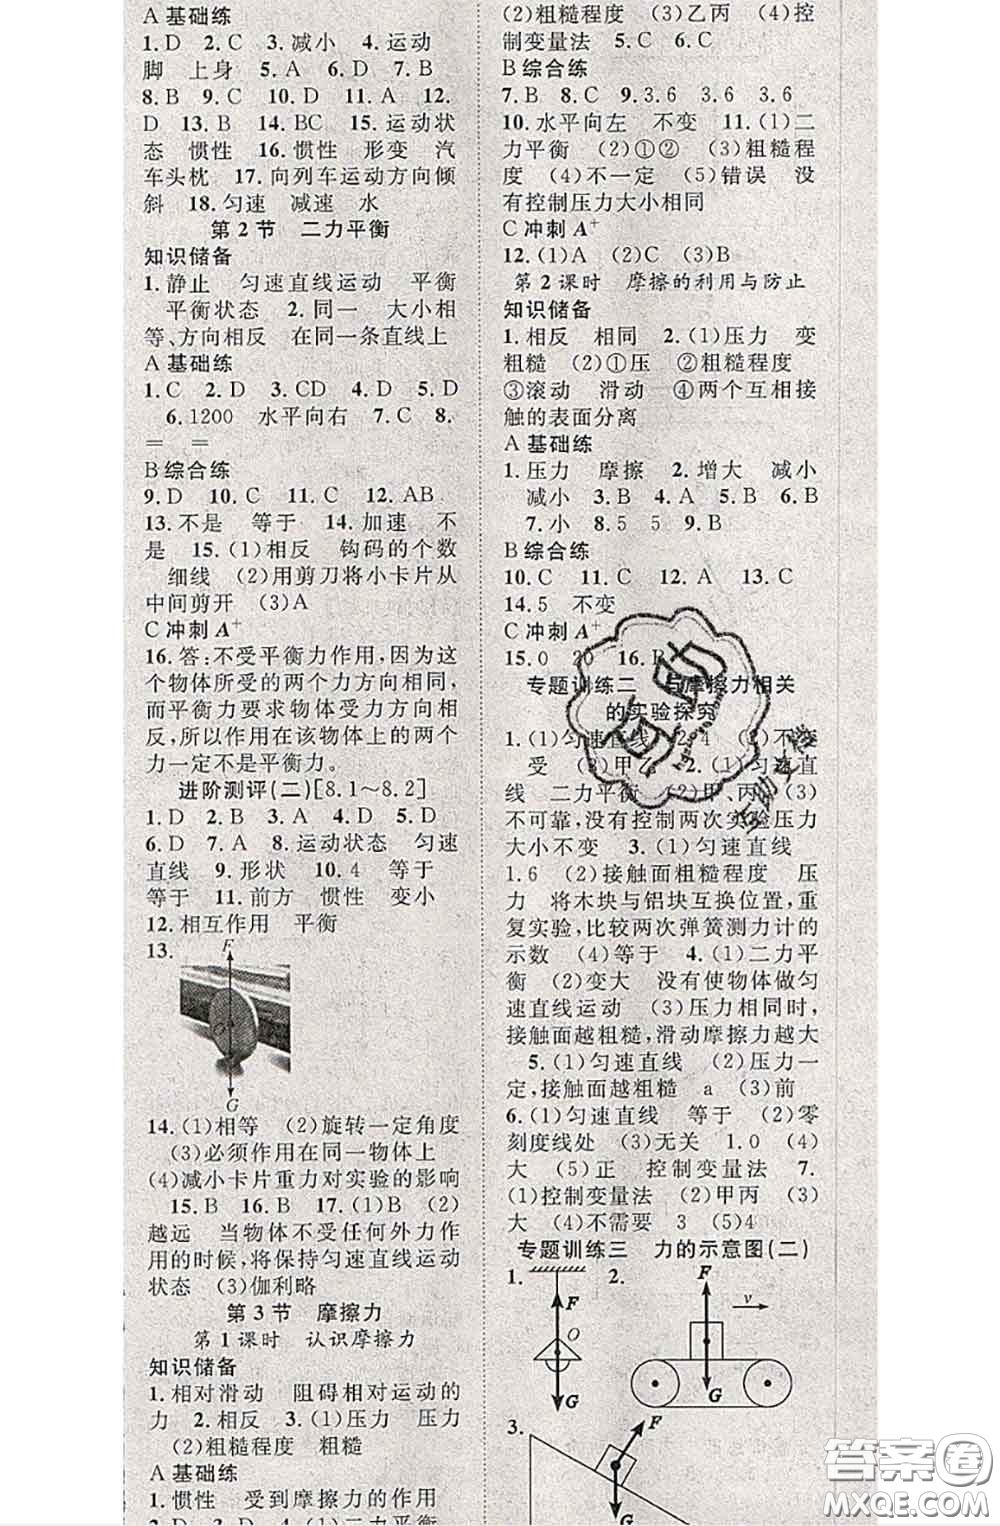 A 基础练
1. D 2. C 3. 减小 4. 运动
脚 上身 5. A 6. D 7. B
8. B 9. C 10. D 11. A 12.
D 13. B 14. BC 15. 运动状
态 惯性 16. 惯性 形变 汽
车头枕 17. 向列车运动方向倾
斜 18. 匀速 减速 水
第 2 节 二力平衡
知识储备
1. 静止 匀速直线运动 平衡
平衡状态 2. 同一 大小相
等、方向相反 在同一条直线上
A 基础练
1. C 2. D 3. CD 4. D 5. D
6. 1200 水平向右 7. C 8.
= =
B 综合练
9. D 10. C 11. C 12. AB
13. 不是 等于 14. 加速 不
是 15. (1)相反 钩码的个数
细线 (2)用剪刀将小卡片从
中间剪开 (3)A
C 冲刺 A+
16. 答:不受平衡力作用,因为这
个物体所受的两个力方向相同,
而平衡力要求物体受力方向相
反,所以作用在该物体上的两个
力一定不是平衡力。
进阶测评(二)[8.1~8.2]
1. D 2. B 3. D 4. A 5. D
6. D 7. A 8. 运动状态 匀速
直线 9. 形状 10. 4 等于
等于 11. 前方 惯性 变小
12. 相互作用 平衡
13.
F
O
G
14. (1)相等 (2)旋转一定角度
(3)必须作用在同一物体上
(4)减小卡片重力对实验的影响
15. B 16. B 17. (1)B (2)
越远 当物体不受任何外力作
用的时候,将保持匀速直线运动
状态 (3)伽利略
第 3 节 摩擦力
第 1 课时 认识摩擦力
知识储备
1. 相对滑动 阻碍相对运动的
力 2. 相反 3. (1)压力 压力
(2)粗糙程度 粗糙
A 基础练
1. 惯性 受到摩擦力的作用
(2)粗糙程度 (3)乙丙 (4)控
制变量法 5. C 6. C
B 综合练
7. B 8. C 9. 3.6 3.6 3.6
10. 水平向左 不变 11. (1)二
力平衡 (2)①② (3)粗糙程
度 (4)不一定 (5)错误 没
有控制压力大小相同
C 冲刺 A+
12. (1)A (2)C (3)B
第 2 课时 摩擦的利用与防止
知识储备
1. 相反 相同 2. (1)压力 变
粗糙 (2)①压 ②粗糙程度
③滚动 滑动 ④两个互相接
触的表面分离
A 基础练
1. 压力 摩擦 2. 增大 减小
减小 3. B 4. A 5. B 6. B
7. 小 8. 5 5 9. B
B 综合练
10. C 11. C 12. A 13. C
14. 5 不变
C 冲刺 A+
15. 0 20 16. B
专题训练二 与摩擦力相关
的实验探究
1. (1)匀速直线 (2)4 (3)不变
受 (3)甲乙 2. (1)匀速直
线 二力平衡 (2)甲、丙 (3)
不可靠,没有控制两次实验压力
大小不变 3. (1)匀速直线
1.6 (2)接触面粗糙程度 压
力 将木块与铝块互换位置,重
复实验,比较两次弹簧测力计的
示数 (4)等于 4. (1)二力平
衡 (2)变大 没有使物体做匀
速直线运动 (3)压力相同时,
接触面越粗糙,滑动摩擦力越大
5. (1)匀速直线 (2)压力一
定,接触面越粗糙 a (3)前
6. (1)匀速直线 等于 (2)零
刻度线处 (3)无关 1.0 (4)
大 (5)正 控制变量法 7.
(1)控制变量法 (2)甲丙 (3)
大 (4)不需要 3 (5)4
专题训练三 力的示意图(二)
1. 2.
F
O
G
F
v
G
3.
F
G
答案圈
MXQE.COM